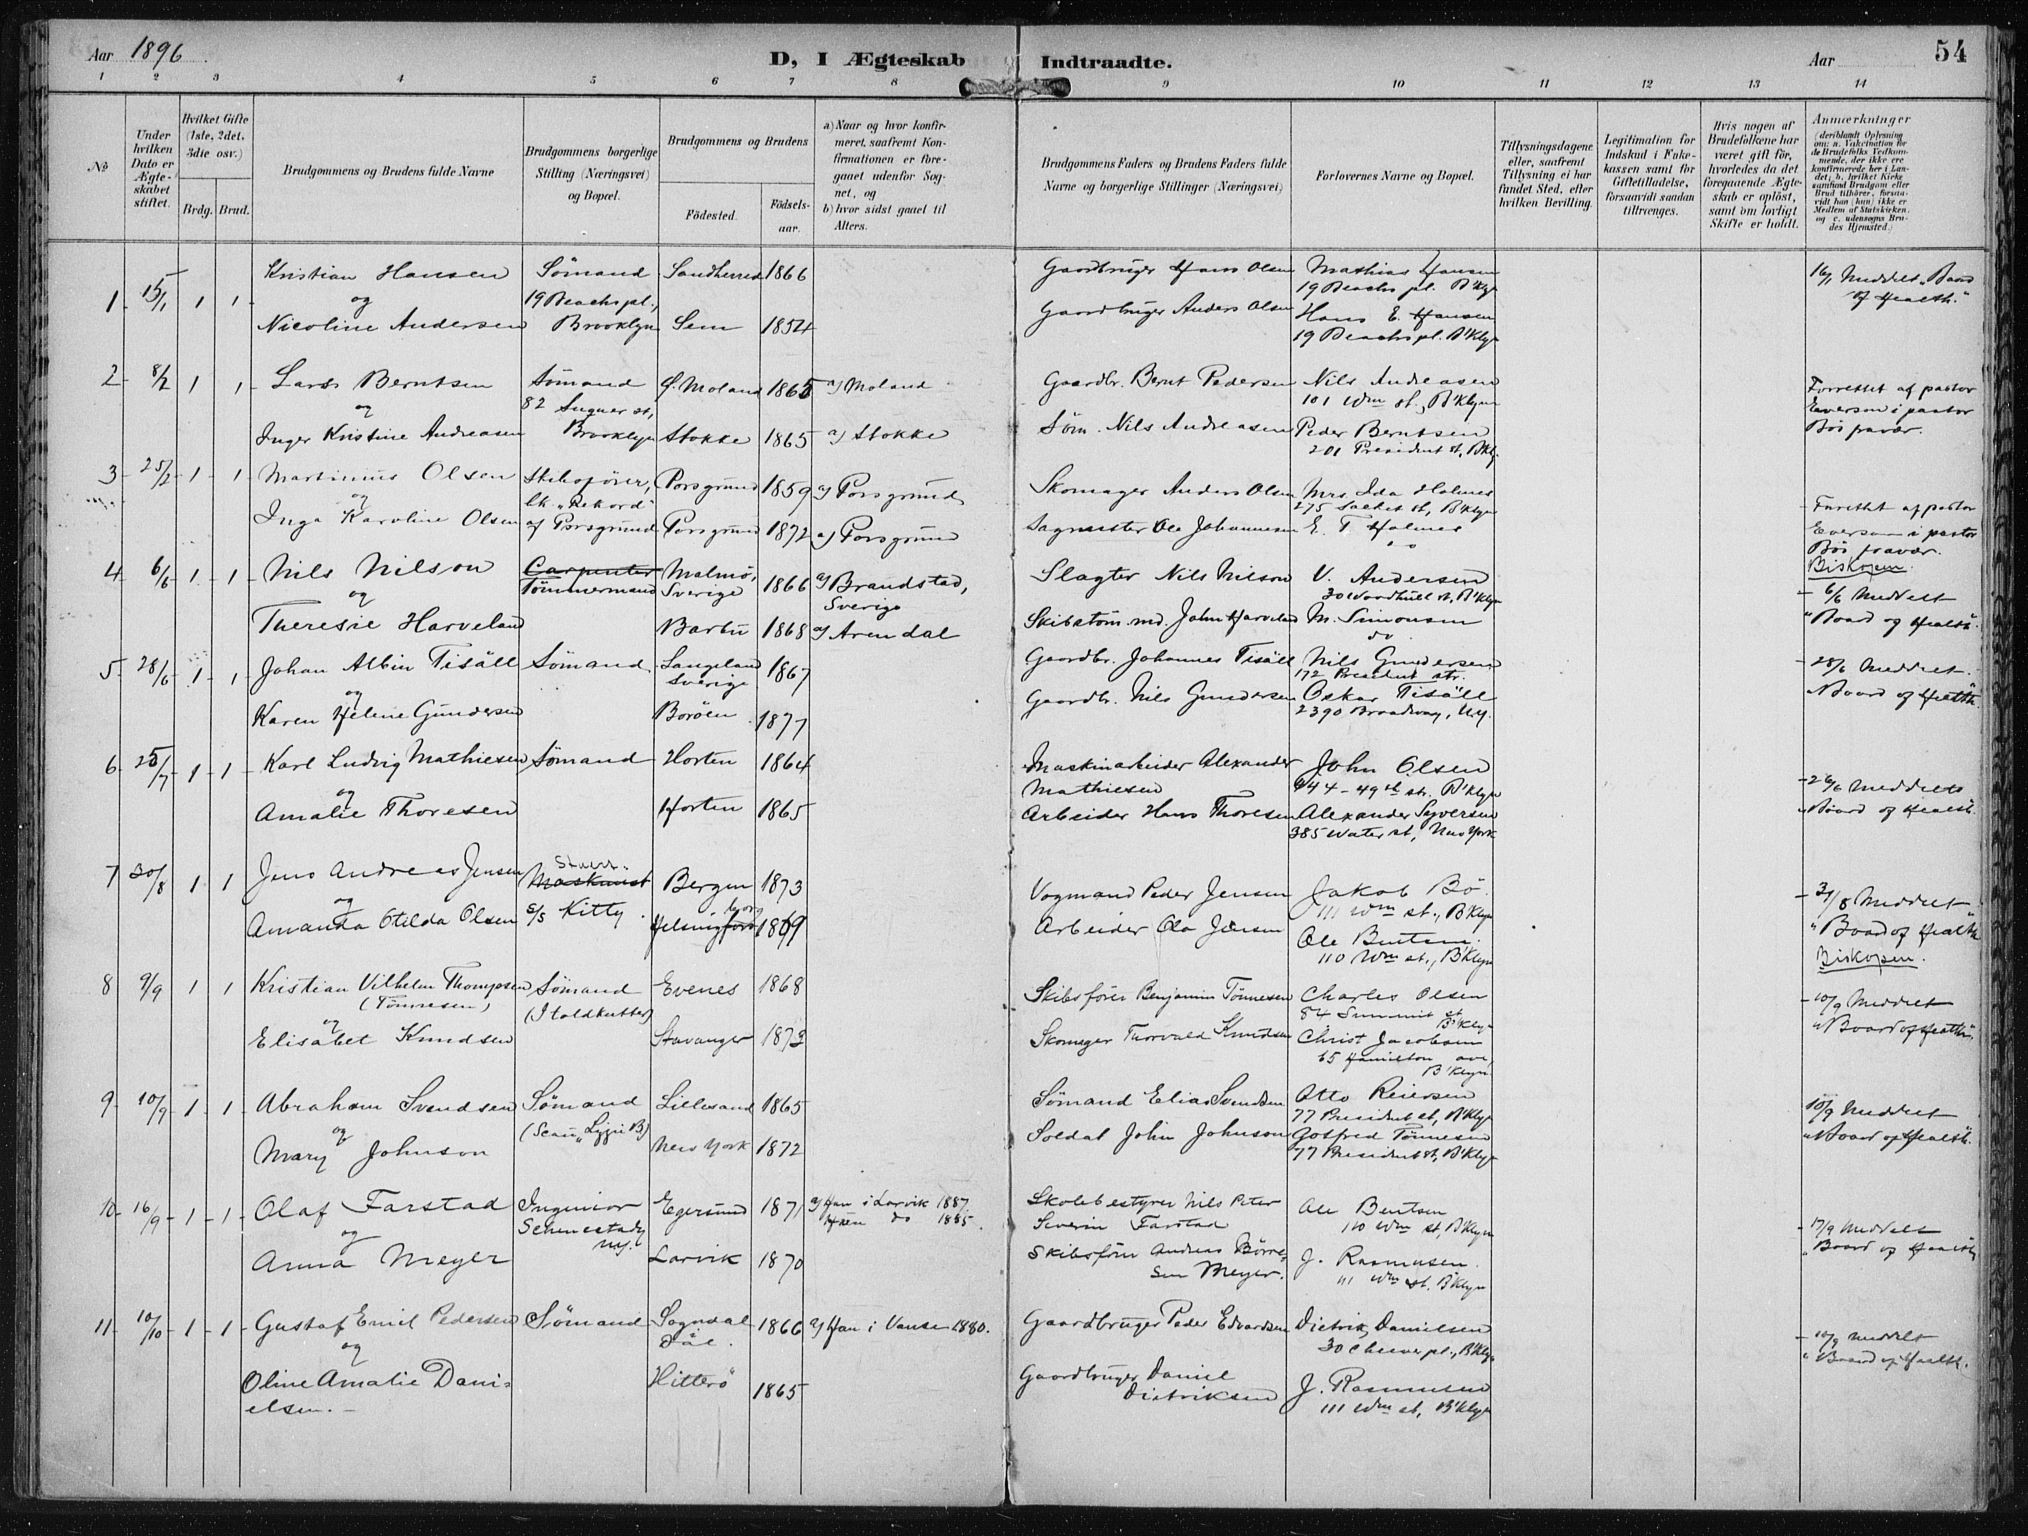 Aar 1896
D, I Ægteskab Indtraadte.
Aar
54
1 2 3 4 5 6 7 8 9 10 11 12 13 14
No
Under hvilken Dato er Ægteskabet stiftet.
Hvilket Gifte (1ste, 2det, 3die osv.)
Brdg. Brud.
Brudgommens og Brudens fulde Navne
Brudgommens borgerlige Stilling (Næringsvei) og Bopæl.
Brudgommens og Brudens
Födested.
Födsels-aar.
a) Naar og hvor konfirmeret, saafremt Konfirmationen er foregaaet udenfor Sognet, og
b) hvor sidst gaaet til Alters.
Brudgommens Faders og Brudens Faders fulde Navne og borgerlige Stillinger (Næringsvei)
Forlovernes Navne og Bopæl.
Tillysningsdagene eller, saafremt Tillysning ei har fundet Sted, efter hvilken Bevilling.
Legitimation for Indskud i Enkekassen samt for Giftetilladelse, forsaavidt saadan tiltrænges.
Hvis nogen af Brudefolkene har været gift för, hvorledes da det foregaaende Ægteskab er oplöst, samt om lovligt Skifte er holdt.
Anmærkninger
(deriblandt Oplysning om: a. Vakcination for de Brudefolks Vedkommende, der ikke ere konfirmerede her i Landet; b. hvilket Kirkesamfund Brudgom eller Brud tilhörer, forsaavidt han (hun) ikke er Medlem af Statskirken. og c. udensogns Brudes Hjemsted.)
1 15/1 1 1 Kristian Hansen Sömand Sandherred 1866 Gaardbruger Hans Olsen Mathias Hansen 16/1 Meddelt "Board
og 19 Beachs pl., 19 Beachs pl. B'klyn of Health."
Nicoline Andersen Brooklyn Sem 1854 Gaardbruger Anders Olsen Hans E. Hansen
19 Beachs pl. B'klyn
2 8/2 1 1 Lars Berntsen Sömand Ö. Moland 1865 a) Moland Gaardbr. Bernt Pedersen Nils Andreasen Forrettet af pastor
og 82 st, 101 Wm st., B'klyn Everson i pastor
Inger Kristine Andreasen Brooklyn Stokke 1865 a) Stokke Söm. Nils Andreasen Peder Berntsen Bös favær.
201 President st, B'klyn
3 25/2 1 1 Martinius Olsen Skibsförer, Porsgrund 1859 a) Porsgrund Skomager Anders Olsen Mrs Ida Holmes Forrettet af pastor
og bk "Rekord" 275 st, B'klyn Everson i pastor
Inga Karoline Olsen af Porsgrund Porsgrund 1872 a) Porsgrund Sagmester Ole Johannesen E. T. Holmes Bös favær.
Biskopen.
4 6/6 1 1 Nils Nilson Carpenter Malmö, 1866 a) Brandstad, Slagter Nils Nilson V. Andersen 6/6 Meddelt
og Tömmermand Sverige Sverige 30 Woodhull st, B'klyn "Board og Health".
Theresie Harveland Barbu 1868 a) Arendal Skibstöm.md. John Harveland M. Simonsen
do
5 28/6 1 1 Johan Albin Tisäll Sömand Langeland 1867 Gaardbr. Johannes Tisäll Nils Gundersen 28/6 Meddelt
og Sverige 172 President str. "Board og Health
Karen Helene Gundersen Boröen 1877 Gaardbr. Nils Gundersen Oskar Tisäll
2390 Broadway, N.Y.
6 25/7 1 1 Karl Ludvig Mathiesen Sömand Horten 1864 Maskinarbeider Alexander John Olsen 26/6 Meddelt
og Mathiesen 444 - 49th str. B'klyn "Board og Health.
Amalie Thoresen Horten 1865 Arbeider Hans Thoresen Alexander Syversen
385 Water st, New York
7 30/8 1 1 Jens Andreas Jensen Maskinist Bergen 1873 Vogmand Peder Jensen Jakob Bö. 31/8 Meddelt
og s/s Kitty 111 Wm st., B'klyn "Board og Health
Amanda Otilda Olsen Helsingfors borg 1869 Arbeider Ola Jensen Ole Bentsen. Biskopen.
110 Wm st., B'klyn
8 9/9 1 1 Kristian Vilhelm Thompsen Sömand Evenes 1868 Skibsförer Benjamin Tönnesen Charles Olsen 10/9 Meddelt
(Tönnesen) (Toldkutter) 84 Summit st B'klyn "Board og Health".
og
Elisabet Knudsen Stavanger 1873 Skomager Thorvald Knudsen Christ Jacobsen
65 Hamilton ave, B'klyn
9 10/9 1 1 Abraham Svendsen Sömand Lillesand 1865 Sömand Elias Svendsen Otto Reiersen 10/9 Meddelt
og 77 President st, B'klyn "Board og Health.
Mary Johnson New York 1872 Soldat John Johnson Gotfred Tönnesen
77 President st, B'klyn
10 16/9 1 1 Olaf Farstad Ingeniör Egersund 1871 a) Han i Larvik 1887. Skolebestyrer Nils Peter Ole Bentsen 17/9 Meddelt
og Schenectady Hun do 1885. Severin Farstad 110 Wm st, B'klyn "Board og Health
Anna Meyer N.Y. Larvik 1870 Skibsförer Andreas Börre- J. Rasmusen.
sen Meyer. 111 Wm st. B'klyn
11 10/10 1 1 Gustaf Emil Pedersen Sömand Sogndal 1866 a) Han i Vanse 1880. Gaardbruger Peder Edvardsen Dietrik Danielsen 10/9 Meddelt
og Dal. 30 Cheever pl., B'klyn "Board og Health.
Oline Amalie Dani- Hitterö 1865 Gaardbruger Daniel J. Rasmusen
elsen. Dietriksen 111 Wm st, B'klyn